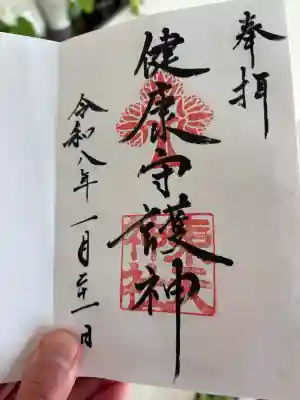 奉拝
健康守護神
令和八年一月二十一日